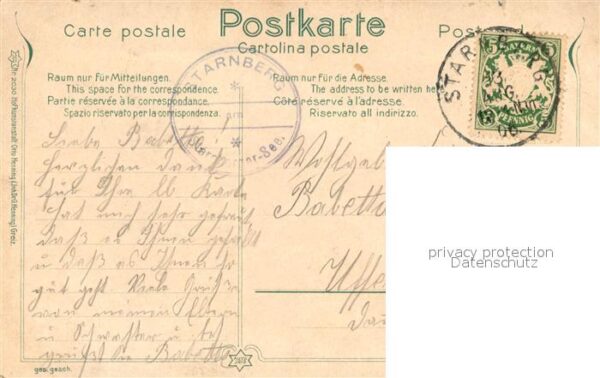 Carte postale
Postkarte
Postcard
Cartolina postale
Raum nur für Mitteilungen.
This space for the correspondence.
Partie réservée à la correspondance.
Spazio riservato per la corrispondenza.
Raum nur für die Adresse.
The address to be written here
Côté réservé à l'adresse.
Riservato all indirizzo.
STARNBERG
am
STARNBERG
BAYERN
5
PFENNIG
Liebe Babette!
Herzlichen Dank
für Ihre lb Karte
hat mich sehr gefreut
daß es Ihnen gefällt
u daß es Ihnen so
gut geht. Viele Grüße
von meinen Eltern
u Schwester u es
grüßt Sie Babette
Babette
Uffe
privacy protection
Datenschutz
ges. gesch.